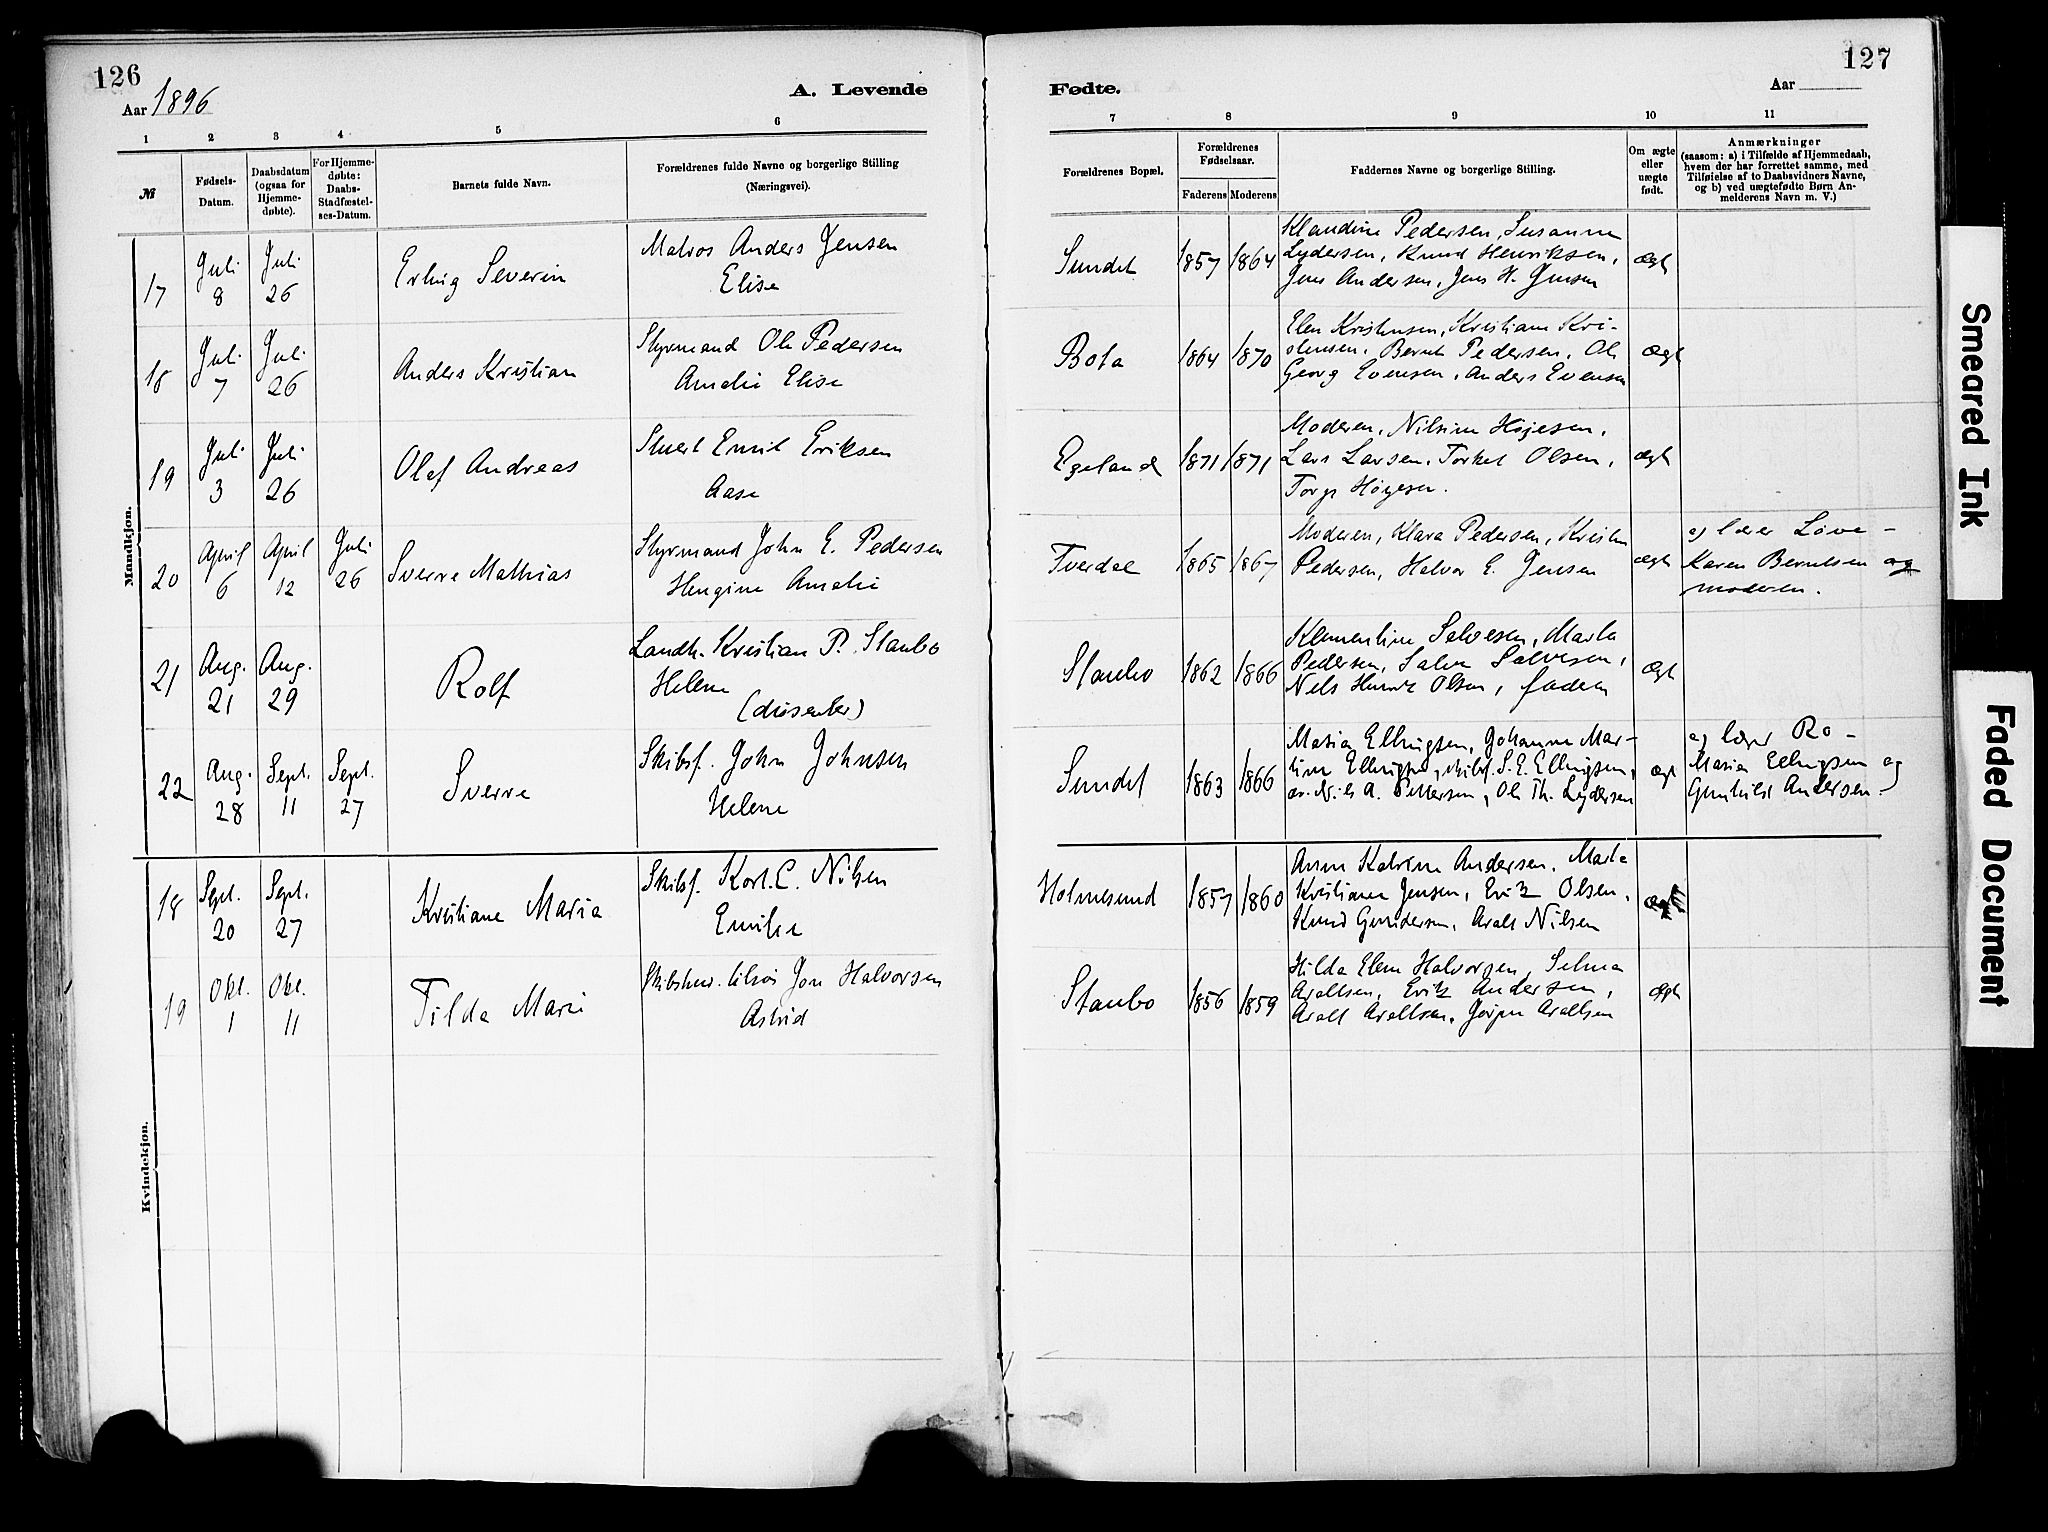 126
Aar 1896
A. Levende
1 2 3 4 5 6
№
Fødsels-
Datum.
Daabsdatum
(ogsaa for
Hjemme-
døbte).
For Hjemme-
døbte:
Daabs-
Stadfæstel-
ses-Datum.
Barnets fulde Navn.
Forældrenes fulde Navne og borgerlige Stilling
(Næringsvei).
Mandkjøn.
17
Juli
8
Juli
26
Erling Severin
Matros Anders Jensen
Elise
18
Juli
7
Juli
26
Anders Kristian
Styrmand Ole Pedersen
Amalie Elise
19
Juli
3
Juli
26
Olaf Andreas
Emil Eriksen
Aase
20
April
6
April
12
Juli
26
Sverre Mathias
Styrmand John E. Pedersen
Amalie
21
Aug.
21
Aug.
29
Rolf
Landh. Kristian P. Staubo
Helene
(dissenter)
22
Aug.
28
Sept.
11
Sept.
27
Sverre
Skibsf. John Johnsen
Helene
Kvindekjøn.
18
Sept.
20
Sept.
27
Kristiane Maria
Skibsf. Karl C. Nilsen
Emilie
19
Okt.
1
Okt.
11
Tilda Marie
Jon Halvorsen
Astrid
127
Fødte.
Aar
7 8 9 10 11
Forældrenes Bopæl.
Forældrenes
Fødselsaar.
Faderens Moderens
Faddernes Navne og borgerlige Stilling.
Om ægte
eller
uægte
født.
Anmærkninger
(saasom: a) i Tilfælde af Hjemmedaab,
hvem der har forrettet samme, med
Tilføielse af to Daabsvidners Navne,
og b) ved uægtefødte Børn An-
melderens Navn m. V.)
Sundet
1857 1864
Klaudine Pedersen, Susanne
Lydersen, Knud Henriksen,
Jens Andersen, Jens H. Jensen
ægte
Bota
1864 1870
Elen Kristensen, Kristiane Kri-
stensen, Bernt Pedersen, Ole
Georg Evensen, Anders Evensen
ægte
Egeland
1871 1871
Moderen, Nilsine
Lars Larsen, Torkel Olsen,
ægte
Tverdal
1865 1867
Moderen, Klara Pedersen, Kristen
Pedersen, Halvor E. Jensen
ægte
a) lærer Løve -
Karen Berntsen og
moderen.
Staubo
1862 1866
Klementine Salvesen, Marta
Pedersen, Salve Salvesen,
Nels Olsen, faderen
ægte
Sundet
1863 1866
Maria Ellingsen, Johanne Mar-
tine Ellingsen, skibsf. S. E. Ellingsen,
Nils A. Pettersen, Ole Th. Lydersen
ægte
a) læger Ro -
Maria Ellingsen og
Gunhild Andersen.
Holmesund
1857 1860
Anne Katrine Andersen, Marte
Kristiane Jensen, Erik Olsen,
Knud Gundersen, Aralt Nilsen
ægte
Staubo
1856 1859
Hilda Elene Halvorsen, Selma
Araltsen, Erik Andersen,
Aralt Araltsen, Jørgen Araltsen
ægte
Smeared Ink
Faded Document